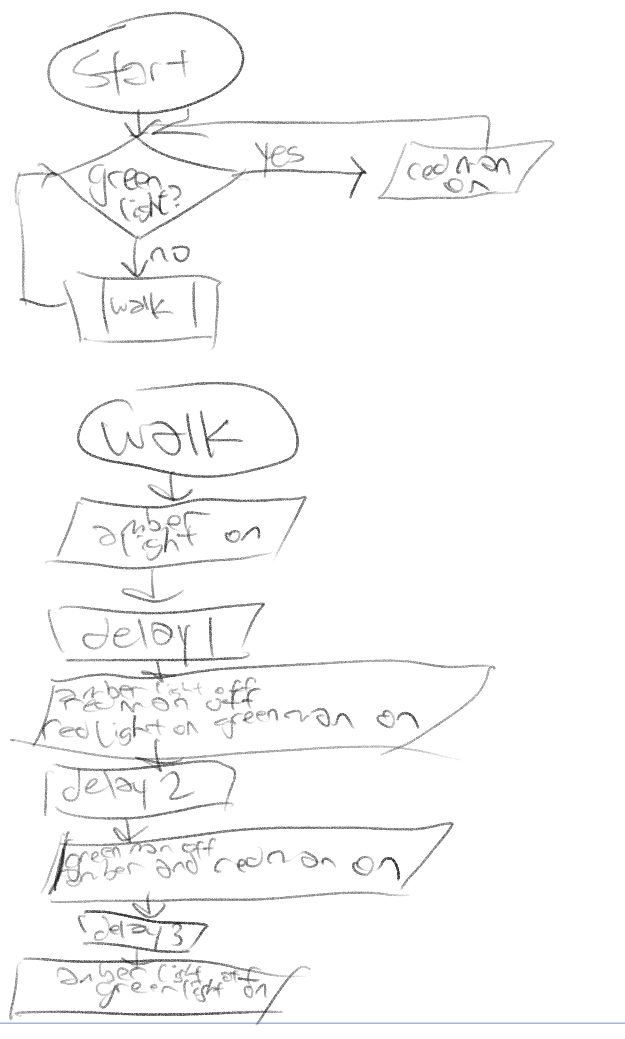 Start
green
light?
yes
red man
on
no
walk
walk
amber
light on
delay 1
amber light off
red man off
red light on green man on
delay 2
green man off
amber and red man on
delay 3
amber light off
green light on